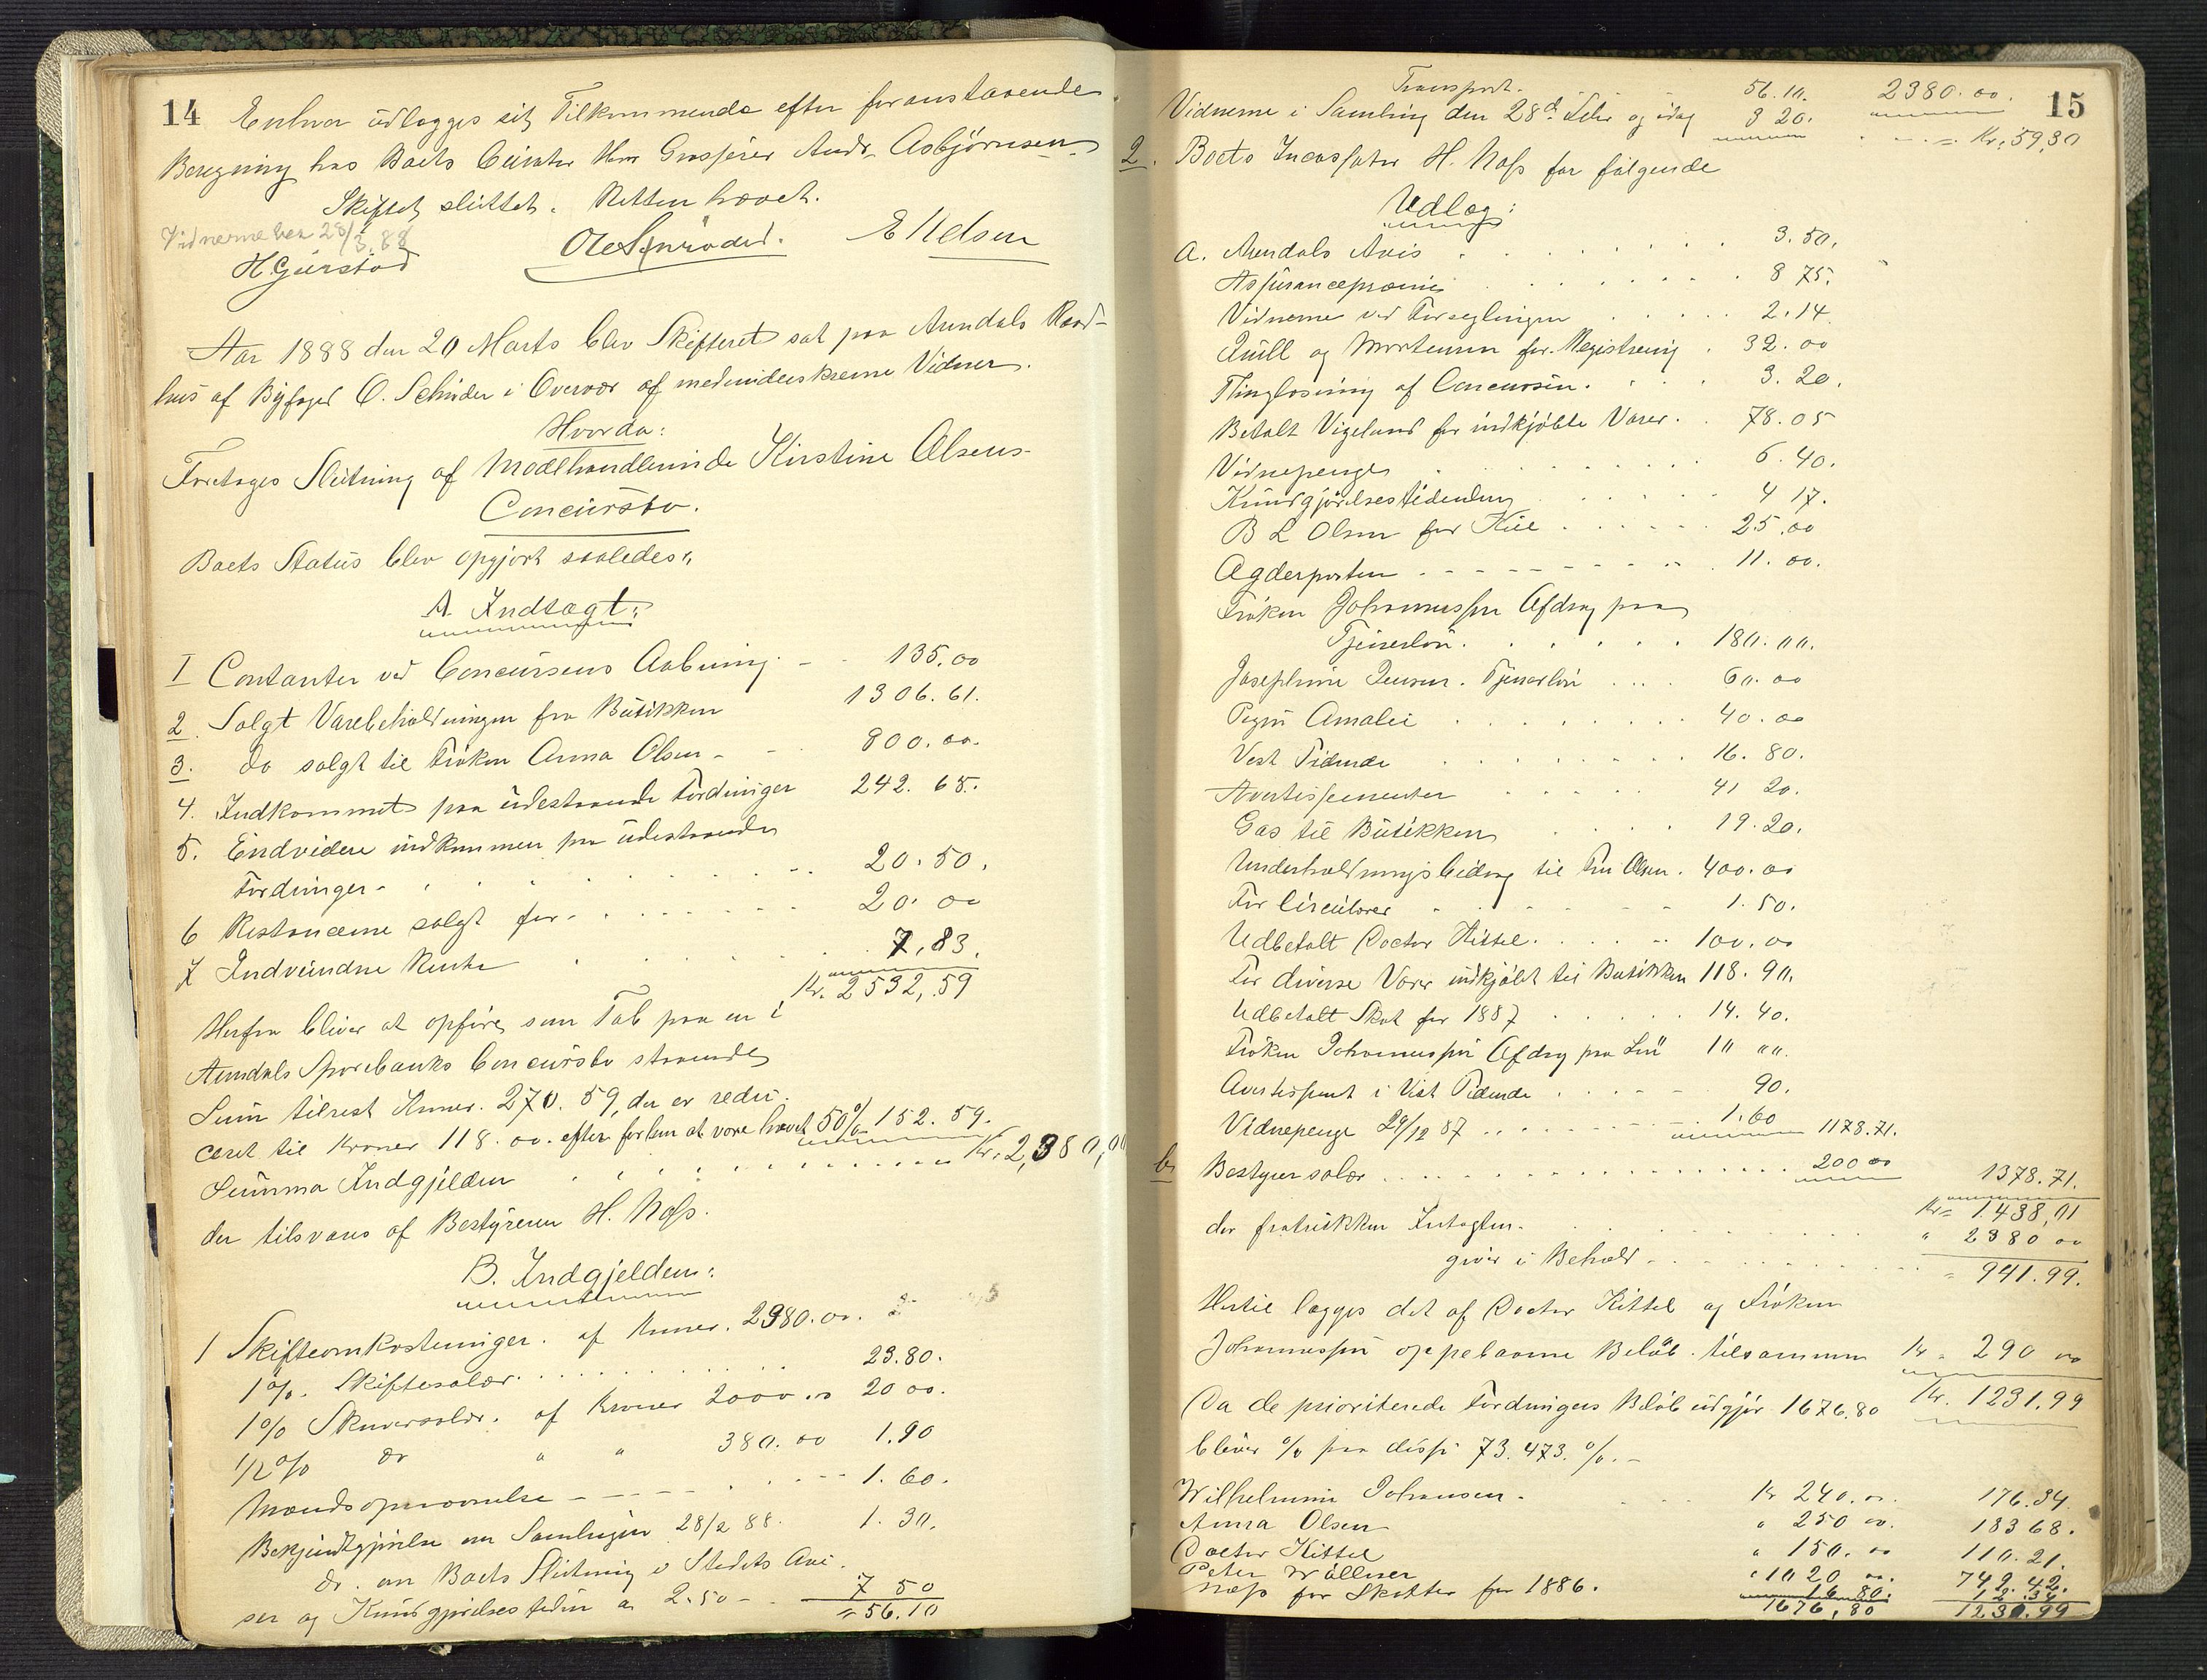 14
Enhver udlægges sit Tilkommende efter foranstaaende
Beregning hos Boets Curator Herr Grosserer Andr. Asbjørnsen.
Skiftet sluttet. Retten hævet.
Vidnerne bet 28/3.88
H Gierstad
E Nelsen
Aar 1888 den 20 Marts blev Skifteret sat paa Arendals Raad-
hus af Byfoged O. Schrøder i Overvær af medunderskrevne Vidner.
Hvorda:
Foretoges Slutning af Modehandlerinde Kirstine Olsens
Concursbo.
Boets Status blev opgjort saaledes:
A. Indtægt:
1 Contanter ved Concursens Aabning - - 135.00
2. Solgt Varebeholdningen fra Butikken 1306.61.
3. do solgt til Frøken Anna Olsen - - 800.00.
4. Indkommet paa udestaaende Fordringer 242.65.
5. Endvidere indkommen paa udestaaende
Fordringer - 20.50.
6 Restancerne solgt for - 20.00
7 Indvundne Renter 7,83.
Kr. 2532,59
Herfra bliver at opføre som Tab paa en i
Arendals Sparebanks Concursbo staaende
Sum tilrest Kroner. 270.59, der er redu-
ceret til Kroner 118.00. efter forlem at være hævet 50% 152.59.
Summa Indgjælden Kr. 2,380,00
der tilsvares af Bestyreren H. Næss.
B. Indgjelden:
1 Skifteomkostninger. af Kroner. 2380.00.
1%. Skiftesalær 23.80.
1% Skriversalær. af Kroner 2000.00 20 00.
1/2% do " " 380.00 1.90
Mændsopnævnelse - 1.60.
Bekjendtgjørelse om Samlingen 28/2 88. 1.30.
do. om Boets Slutning i Stedets Avi-
ser og Kundgjørelsestiden a 2.50 - 7 50
= 56.10
15
Transport. 56.10. 2380.00.
Vidnerne i Samling den 28de Febr og idag 3 20. = Kr. 59,30
2. Boets Incassator H. Næss for følgende
Udlæg:
a. Arendals Avis 3.50.
Assurancepræmie 8 75.
Vidnerne ved Forseglingen 2.14
Juell og Mortensen for Registrering 32.00
Thinglæsning af Concursen. 3.20.
Betalt Vigeland for indkjøbte Varer. 78.05
Vidnepenge 6.40.
Kundgjørelsestidenden 4 17.
B L Olsen for Kul 25.00
Agderposten 11.00.
Frøken Johannessen Afdrag paa
Tjenerløn. 180.00.
Josephine Jensen. Tjenerløn 60.00
Pigen Amalie 40.00
Vest Tidende 16.80.
Avertissementer 41 20.
Gas til Butikken 19.20.
Underholdningsbidrag til Fru Olsen. 400.00
For Circulærer 1.50.
Udbetalt Doctor Kittel. 100.00
For diverse Varer indkjøbt til Butikken 118.90.
Udbetalt Skat for 1887 14.40.
Frøken Johannessen Afdrag paa Løn 10 00.
Avertissement i Vest Tidende 90.
Vidnepenge 29/12 87 1.60 1178.71.
b. Bestyrer salær 200 00 1378.71.
Kr= 1438,01
der fratrukken Indtægten. " 2380 00
giver i Behold - = 941.99.
Hertil lægges det af Doctor Kittel og Frøken
Johannessen oppebaarne Beløb. tilsammen Kr. 290 00
Kr. 1231.99
Da de prioriterede Fordringers Beløb udgjør 1676.80
bliver % paa disse 73.473.%. -
Wilhelmine Johansen. Kr 240.00. 176.34.
Anna Olsen " 250 00. 183 68.
Doctor Kittel " 150.00 110.21.
Peter Wøllner " 1020 00. 749.42.
Næss for Skatter for 1886. 16 80. 12.34
1676,80 1231.99